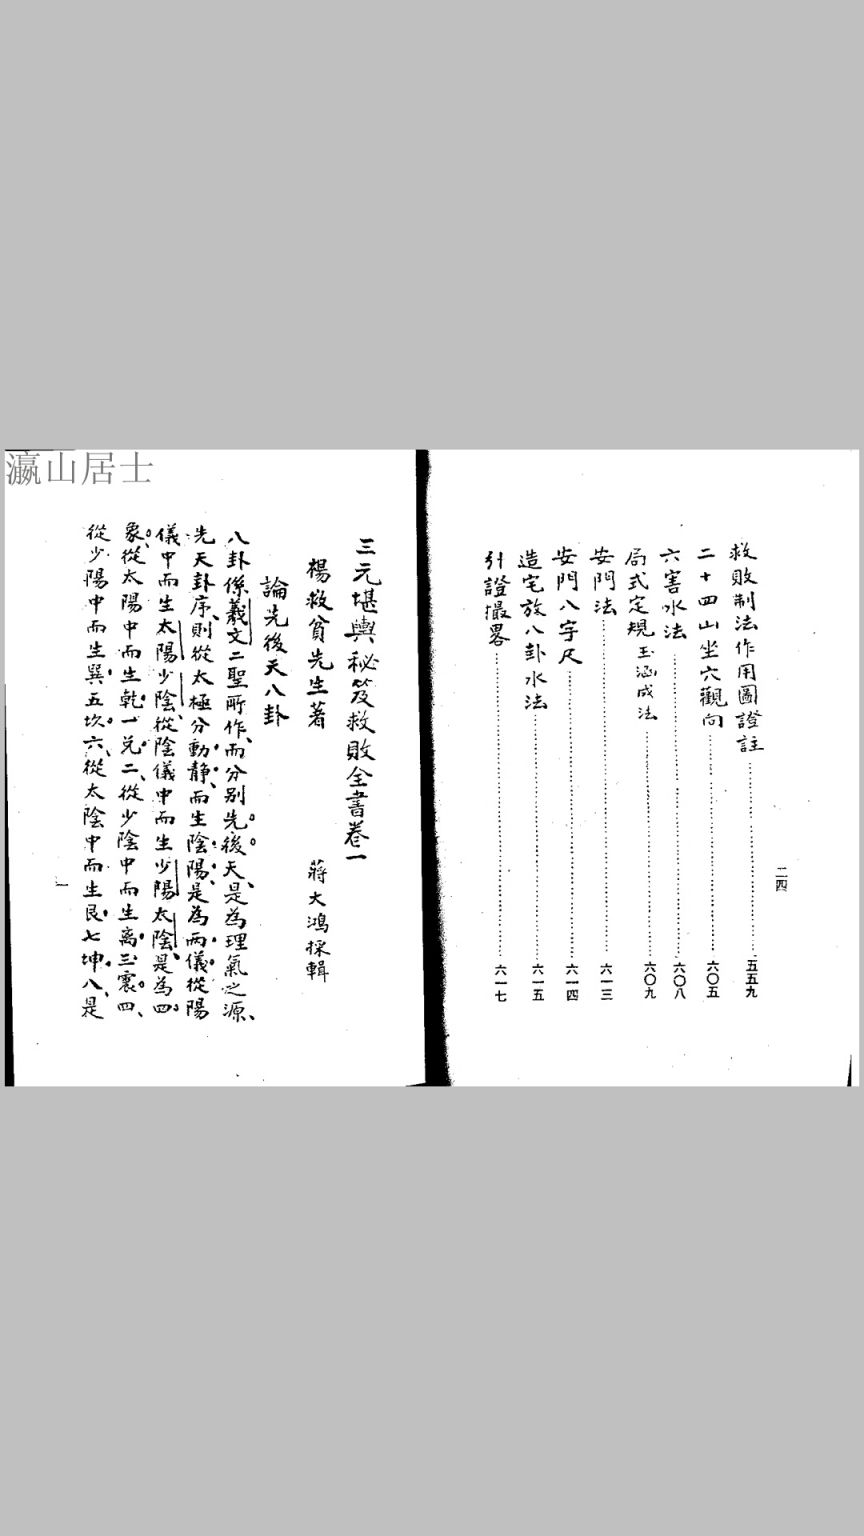 瀛山居士
救敗制法作用圖證註……五五九
二十四山坐穴觀向……六〇五
六害水法……六〇八
局式定規玉涵成法……六〇九
安門法……六一三
安門八字尺……六一四
造宅放八卦水法……六一五
引證撮畧……六一七
二四
三元堪輿秘笈救敗全書卷一
楊救貧先生著 蔣大鴻採輯
論先後天八卦
八卦係羲文二聖所作、而分别先後天、是為理氣之源、
先天卦序、則從太極分動靜、而生陰陽、是為兩儀、從陽
儀中而生太陽少陰、從陰儀中而生少陽太陰、是為四
象、從太陽中而生乾一兌二、從少陰中而生離三震四、
從少陽中而生巽五坎六、從太陰中而生艮七坤八、是
一